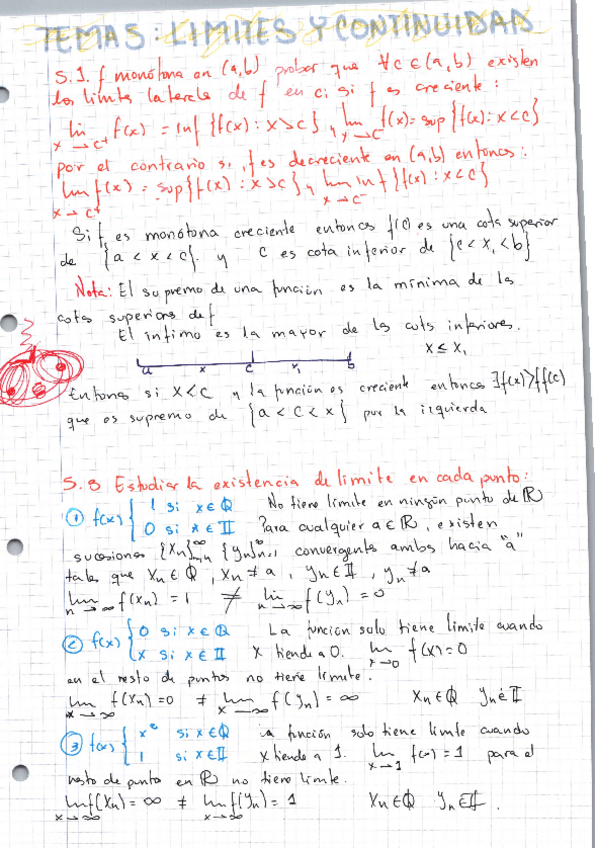 TEMA 5: LIMITES Y CONTINUIDAD
5.1. f monótona en (a,b) probar que ∀c ∈ (a,b) existen
los limites laterales de f en c; si f es creciente:
lim x→c⁺ f(x) = inf {f(x) : x>c} y lim x→c⁻ f(x) = sup {f(x) : x<c}
por el contrario si f es decreciente en (a,b) entonces:
lim x→c⁺ f(x) = sup {f(x) : x>c} y lim x→c⁻ inf {f(x) : x<c}
Si f es monótona creciente entonces f(c) es una cota superior
de {a < x < c} y c es cota inferior de {c < x₁ < b}
Nota: El supremo de una función es la mínima de las
cotas superiores de f
El ínfimo es la mayor de las cotas inferiores.
x ≤ x₁
a x c x₁ b
Entonces si x<c y la función es creciente entonces ∃f(x)>f(c)
que es supremo de {a < c < x} por la izquierda
5.8 Estudiar la existencia de limite en cada punto:
① f(x) { 1 si x∈ℚ No tiene límite en ningún punto de ℝ
0 si x∈𝕀 Para cualquier a∈ℝ, existen
sucesiones {xn} {yn} convergentes ambos hacia "a"
tales que xn∈ℚ, xn≠a, yn∈𝕀, yn≠a
lim n→∞ f(xn) = 1 ≠ lim n→∞ f(yn) = 0
② f(x) { 0 si x∈ℚ La función solo tiene limite cuando
x si x∈𝕀 x tiende a 0. lim x→0 f(x)=0
en el resto de puntos no tiene limite.
lim x→∞ f(xn)=0 ≠ lim x→∞ f(yn)=∞ xn∈ℚ yn∈𝕀
③ f(x) { x² si x∈ℚ La función solo tiene limite cuando
1 si x∈𝕀 x tiende a 1. lim x→1 f(x)=1 para el
resto de punto en ℝ no tiene limite.
lim x→∞ f(xn)=∞ ≠ lim x→∞ f(yn)=1 xn∈ℚ yn∈𝕀.